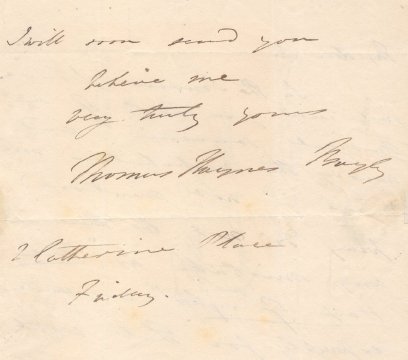 I will soon send you
believe me
very truly yours
Thomas Haynes Bayly
2 Catherine Place
Friday.